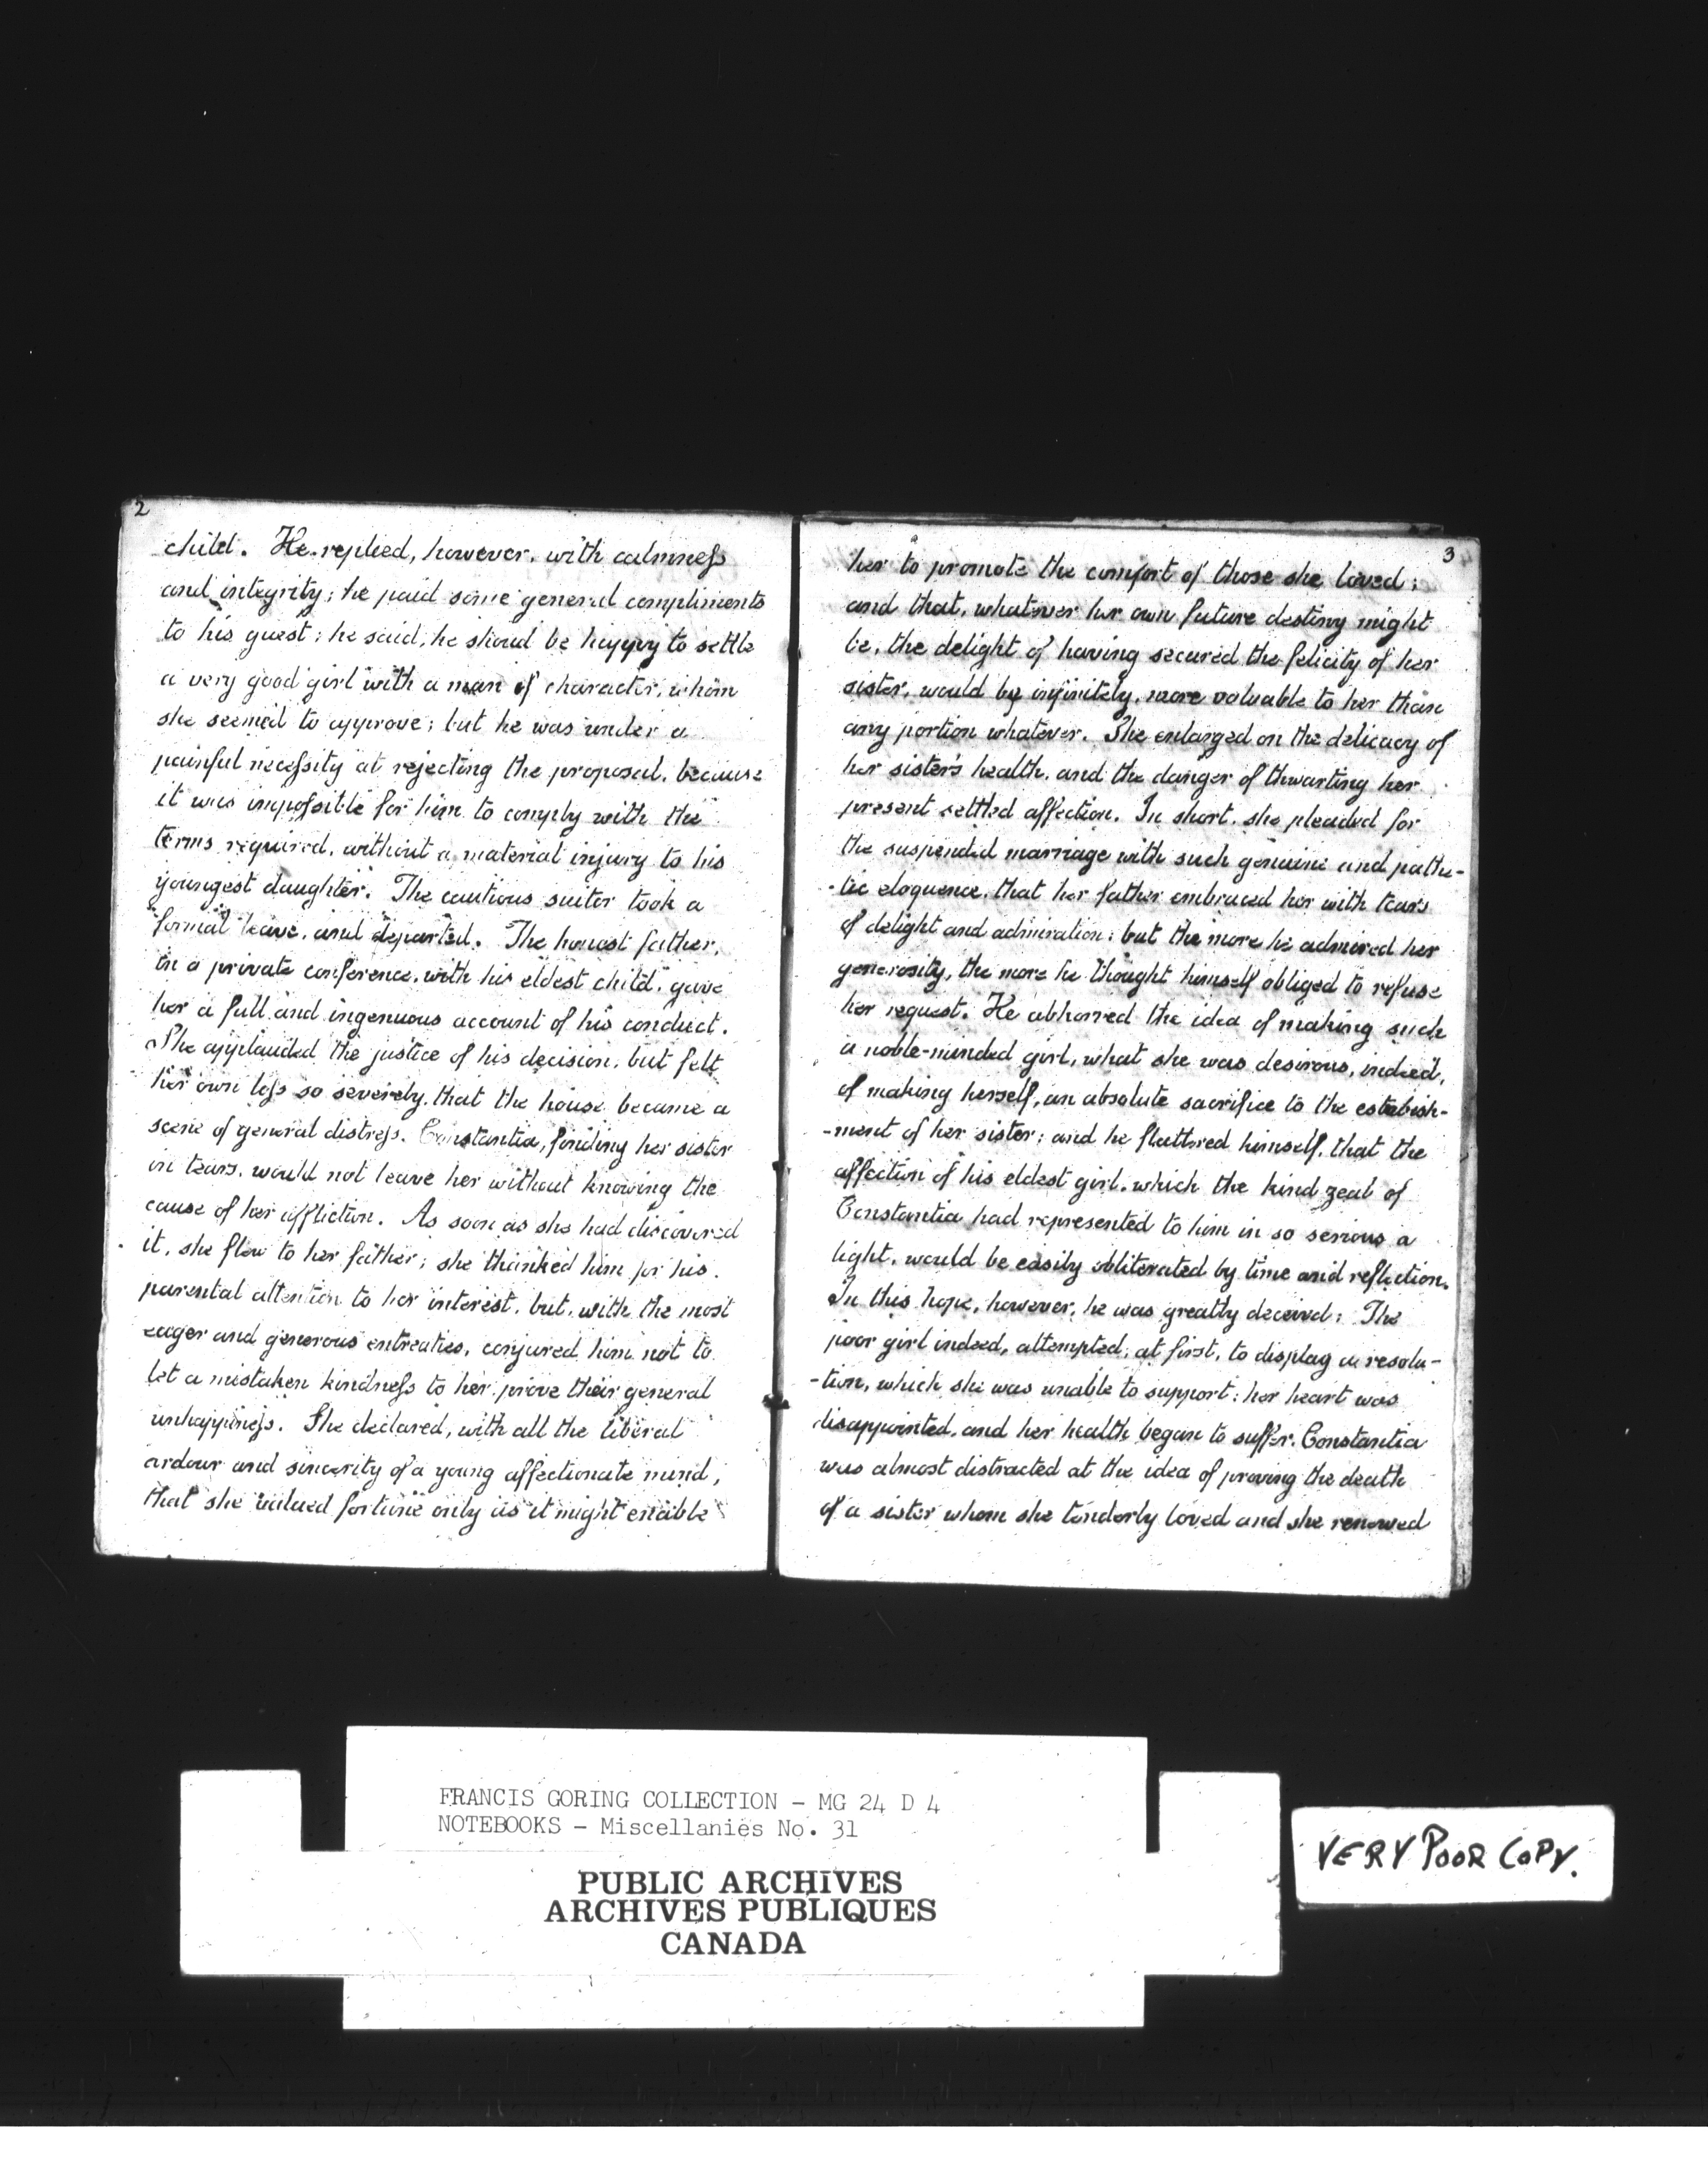 2
child. He replied, however, with calmness
and integrity; he paid some general compliments
to his guest; he said, he shoud be happy to settle
a very good girl with a man of character, whom
she seemed to approve; but he was under a
painful necessity at rejecting the proposal, because
it was impossible for him to comply with the
terms required, without a material injury to his
youngest daughter. The cautious suitor took a
formal leave, and departed. The honest father,
in a private conference, with his eldest child, gave
her a full and ingenuous account of his conduct.
She applauded the justice of his decision, but felt
her own loss so severely, that the house became a
scene of general distress. Constantia, finding her sister
in tears, would not leave her without knowing the
cause of her affliction. As soon as she had discovered
it, she flew to her father; she thanked him for his
parental attention to her interest, but, with the most
eager and generous entreaties, conjured him not to
let a mistaken kindness to her prove their general
unhappiness. She declared, with all the liberal
ardour and sincerity of a young affectionate mind,
that she valued fortune only as it might enable
3
her to promote the comfort of those she loved;
and that, whatever her own future destiny might
be, the delight of having secured the felicity of her
sister, would be infinitely, more valuable to her than
any portion whatever. She enlarged on the delicacy of
her sister's health, and the danger of thwarting her
present settled affection. In short, she pleaded for
the suspended marriage with such genuine and pathe-
-tic eloquence, that her father embraced her with tears
of delight and admiration; but the more he admired her
generosity, the more he thought himself obliged to refuse
her request. He abhorred the idea of making such
a noble-minded girl, what she was desirous, indeed,
of making herself, an absolute sacrifice to the estabish-
-ment of her sister; and he flattered himself, that the
affection of his eldest girl, which the kind zeal of
Constantia had represented to him in so serious a
light, would be easily obliterated by time and reflection.
In this hope, however, he was greatly deceived: The
poor girl indeed, attempted, at first, to display a resolu-
-tion, which she was unable to support: her heart was
disappointed, and her health began to suffer. Constantia
was almost distracted at the idea of proving the death
of a sister whom she tenderly loved and she renewed
FRANCIS GORING COLLECTION - MG 24 D 4
NOTEBOOKS - Miscellanies No. 31
PUBLIC ARCHIVES
ARCHIVES PUBLIQUES
CANADA
VERY POOR COPY.